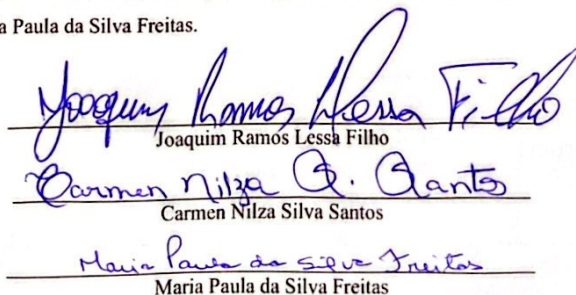 a Paula da Silva Freitas.
Joaquim Ramos Lessa Filho
Joaquim Ramos Lessa Filho
Carmen Nilza S. Santos
Carmen Nilza Silva Santos
Maria Paula da Silva Freitas
Maria Paula da Silva Freitas